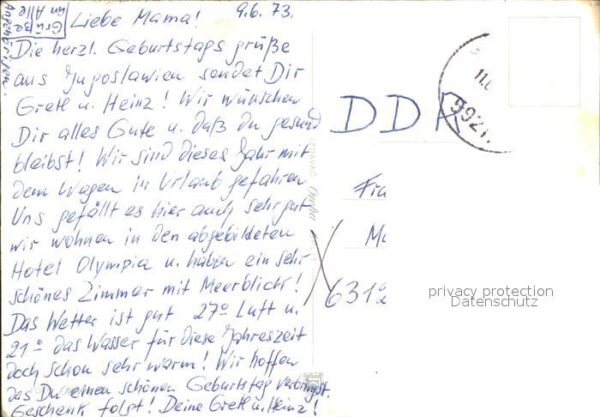 Grüße an Alle Angehörigen!
9.6.73.
Liebe Mama!
Die herzl. Geburtstagsgrüße
aus Jugoslawien sendet Dir
Gretl u. Heinz! Wir wünschen
Dir alles Gute u. daß du gesund
bleibst! Wir sind dieses Jahr mit
dem Wagen in Urlaub gefahren
Uns gefällt es hier auch sehr gut
wir wohnen in den abgebildeten
Hotel Olympia u. haben ein sehr
schönes Zimmer mit Meerblick!
Das Wetter ist gut 27° Luft u.
21° das Wasser für diese Jahreszeit
doch schon sehr warm! Wir hoffen
das Du einen schönen Geburtstag verbringst.
Geschenk folgt! Deine Gretl u. Heinz!
DDR
Fra
631
privacy protection
Datenschutz